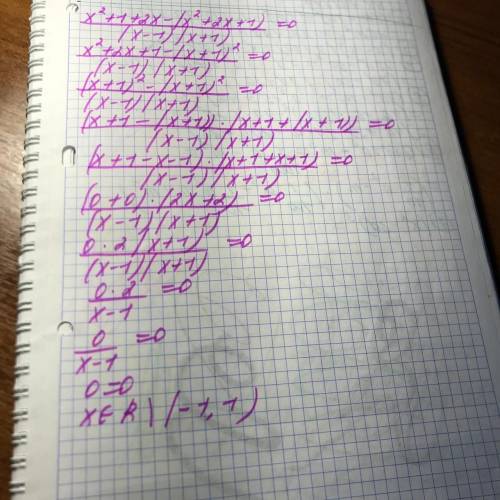 x²+1+2x-(x²+2x+1)/(x-1)(x+1) =0
x²+2x+1-(x+1)²/(x-1)(x+1) =0
(x+1)²-(x+1)²/(x-1)(x+1) =0
(x+1-(x+1))·(x+1+(x+1))/(x-1)(x+1) =0
(x+1-x-1)·(x+1+x+1)/(x-1)(x+1) =0
(0+0)·(2x+2)/(x-1)(x+1) =0
0·2(x+1)/(x-1)(x+1) =0
0·2/x-1 =0
0/x-1 =0
0=0
x∈R\(-1,1)